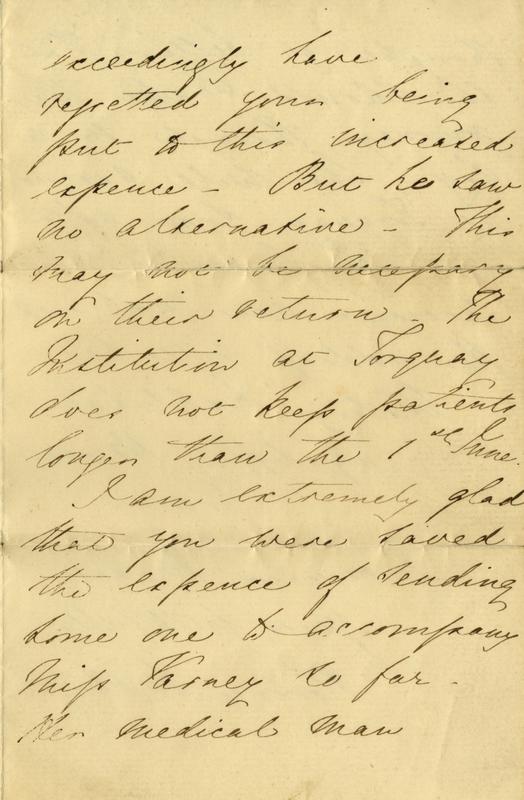 exceedingly have
regretted your being
put to this increased
expence - But he saw
no alternative - This
may not be necessary
on their return - The
Institution at Torquay
does not keep patients
longer than the 1st June.
I am extremely glad
that you were saved
the expence of sending
some one to accompany
Miss Varney so far -
Her medical man